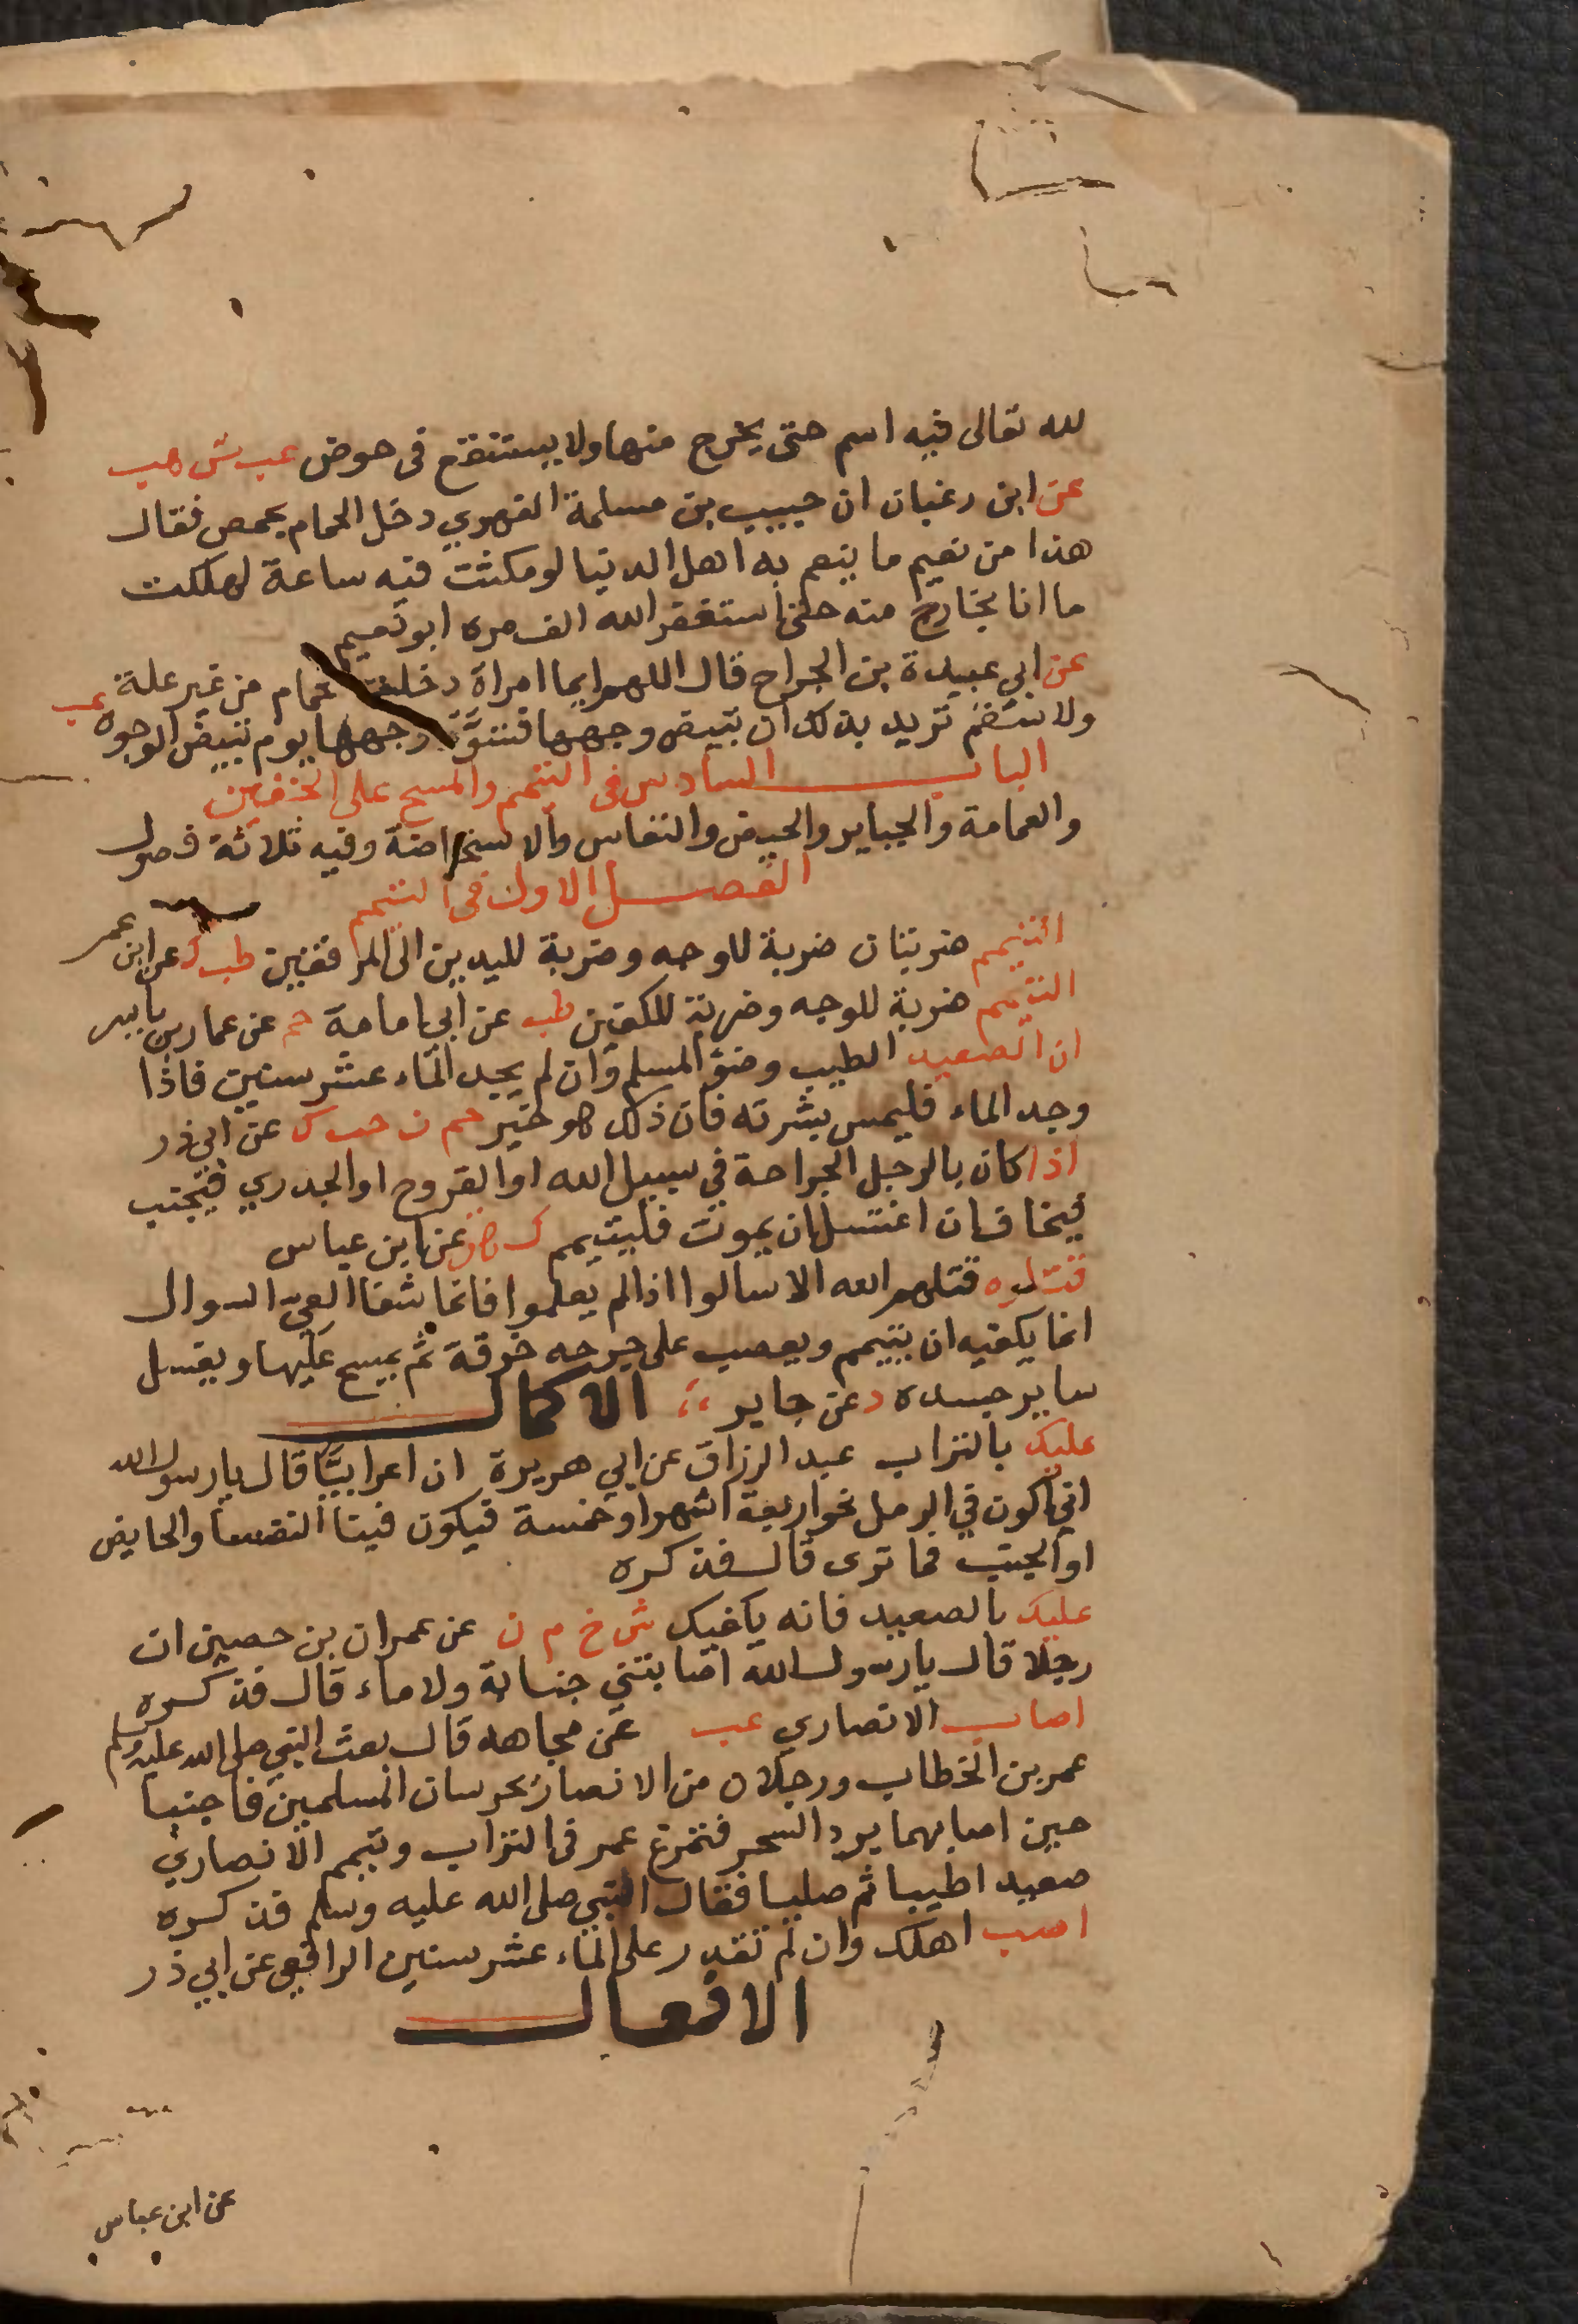 لله تعالى فيه اسم حتى يخرج منها ولا يستنقع فى حوض عب ش هب
عن ابن رغبان ان حبيب بن مسلمة الفهري دخل الحمام بحمص فقال
هذا من نعيم ما ينعم به اهل الدنيا لو مكثت فيه ساعة لهلكت
ما انا بخارج منه حتى استغفر الله الف مره ابو نعيم
عن ابي عبيدة بن الجراح قال اللهم ايما امراة دخلت الحمام من غير علة عب
ولا سقم تريد بذلك ان تبيض وجهها فسود وجهها يوم تبيض الوجوه
الباب السادس فى التيمم والمسح على الخفين
والعمامة والجباير والحيض والنفاس والاستحاضة وفيه ثلاثة فصول
الفصل الاول فى التيمم
التيمم ضربتان ضربة للوجه وضربة لليدين الى المرفقين طب ك عن ابن عمر
التيمم ضربة للوجه وضربة للكفين طب عن ابي امامة حم عن عمار بن ياسر
ان الصعيد الطيب وضؤ المسلم وان لم يجد الماء عشر سنين فاذا
وجد الماء فليمس بشرته فان ذلك هو خير حم ن حب ك عن ابي ذر
اذا كان بالرجل الجراحة في سبيل الله او القروح او الجدري فيجنب
فيخاف ان اغتسل ان يموت فليتيمم ك هق عن ابن عباس
قتلوه قتلهم الله الا سالوا اذا لم يعلموا فانما شفا العي السوال
انما يكفيه ان يتيمم ويعصب على جرحه خرقة ثم يمسح عليها ويغسل
ساير جسده د عن جابر الاكمال
عليك بالتراب عبد الرزاق عن ابي هريرة ان اعرابيا قال يا رسول الله
اني اكون في الرمل نحو اربعة اشهر او خمسة فيكون فينا النفسا والحايض
او الجنب فما ترى قال فذكره
عليك بالصعيد فانه يكفيك ش خ م ن عن عمران بن حصين ان
رجلا قال يا رسول الله اصابتني جنابة ولا ماء قال فذكره
اصاب الانصاري عب عن مجاهد قال بعث النبي صلى الله عليه وسلم
عمر بن الخطاب ورجلان من الانصار يحرسان المسلمين فاجنبا
حين اصابهما برد السحر فتمرغ عمر فى التراب وتيمم الانصاري
صعيدا طيبا ثم صليا فقال النبي صلى الله عليه وسلم فذكره
اصب اهلك وان لم تقدر على الماء عشر سنين الرافعي عن ابي ذر
الافعال
عن ابن عباس